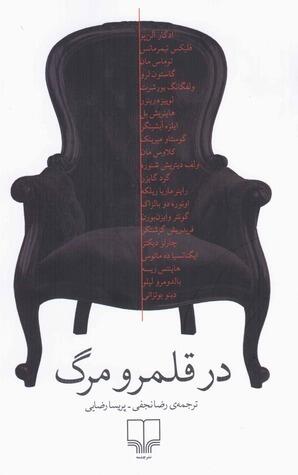 ادگار آلن‌پو
فلیکس تیمرمانس
توماس مان
گاستون لرو
ولفگانگ بورشرت
لوییزه رینزر
هاینریش بل
ایلزه آیشینگر
گوستاو میرینک
کلاوس مان
ولف دیتریش شنوره
گرد گایزر
راینر ماریا ریلکه
اونوره دو بالزاک
گونتر وایزن‌بورن
فریدریش گرشتکر
چارلز دیکنز
ایگناتسیا ده ماتوس
هاینتس ریسه
بالدومرو لیلو
دینو بوتزاتی
در قلمرو مرگ
ترجمه‌ی رضا نجفی ـ پریسا رضایی
نشرچشمه